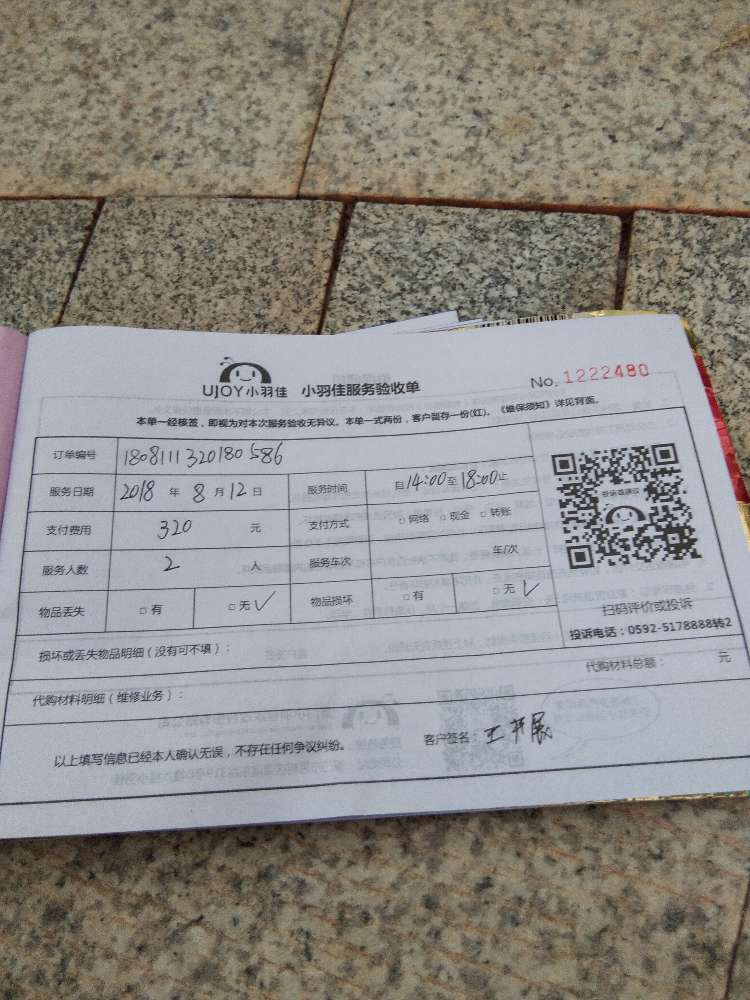 UJOY小羽佳 小羽佳服务验收单 No. 1222480
本单一经核签，即视为对本次服务验收无异议。本单一式两份，客户留存一份(红)。《维保须知》详见背面。
订单编号 1808111320180586
服务日期 2018 年 8 月 12 日 服务时间 自14:00至18:00止
支付费用 320 元 支付方式 □ 网络 □ 现金 □ 转账
服务人数 2 人 服务车次 年/次
物品丢失 □ 有 □ 无 ✓ 物品损坏 □ 有 □ 无 ✓
扫码评价或投诉
投诉电话：0592-5178888转2
损坏或丢失物品明细（没有可不填）：
代购材料明细（维修业务）： 代购材料总额： 元
以上填写信息已经本人确认无误，不存在任何争议纠纷。 客户签名：